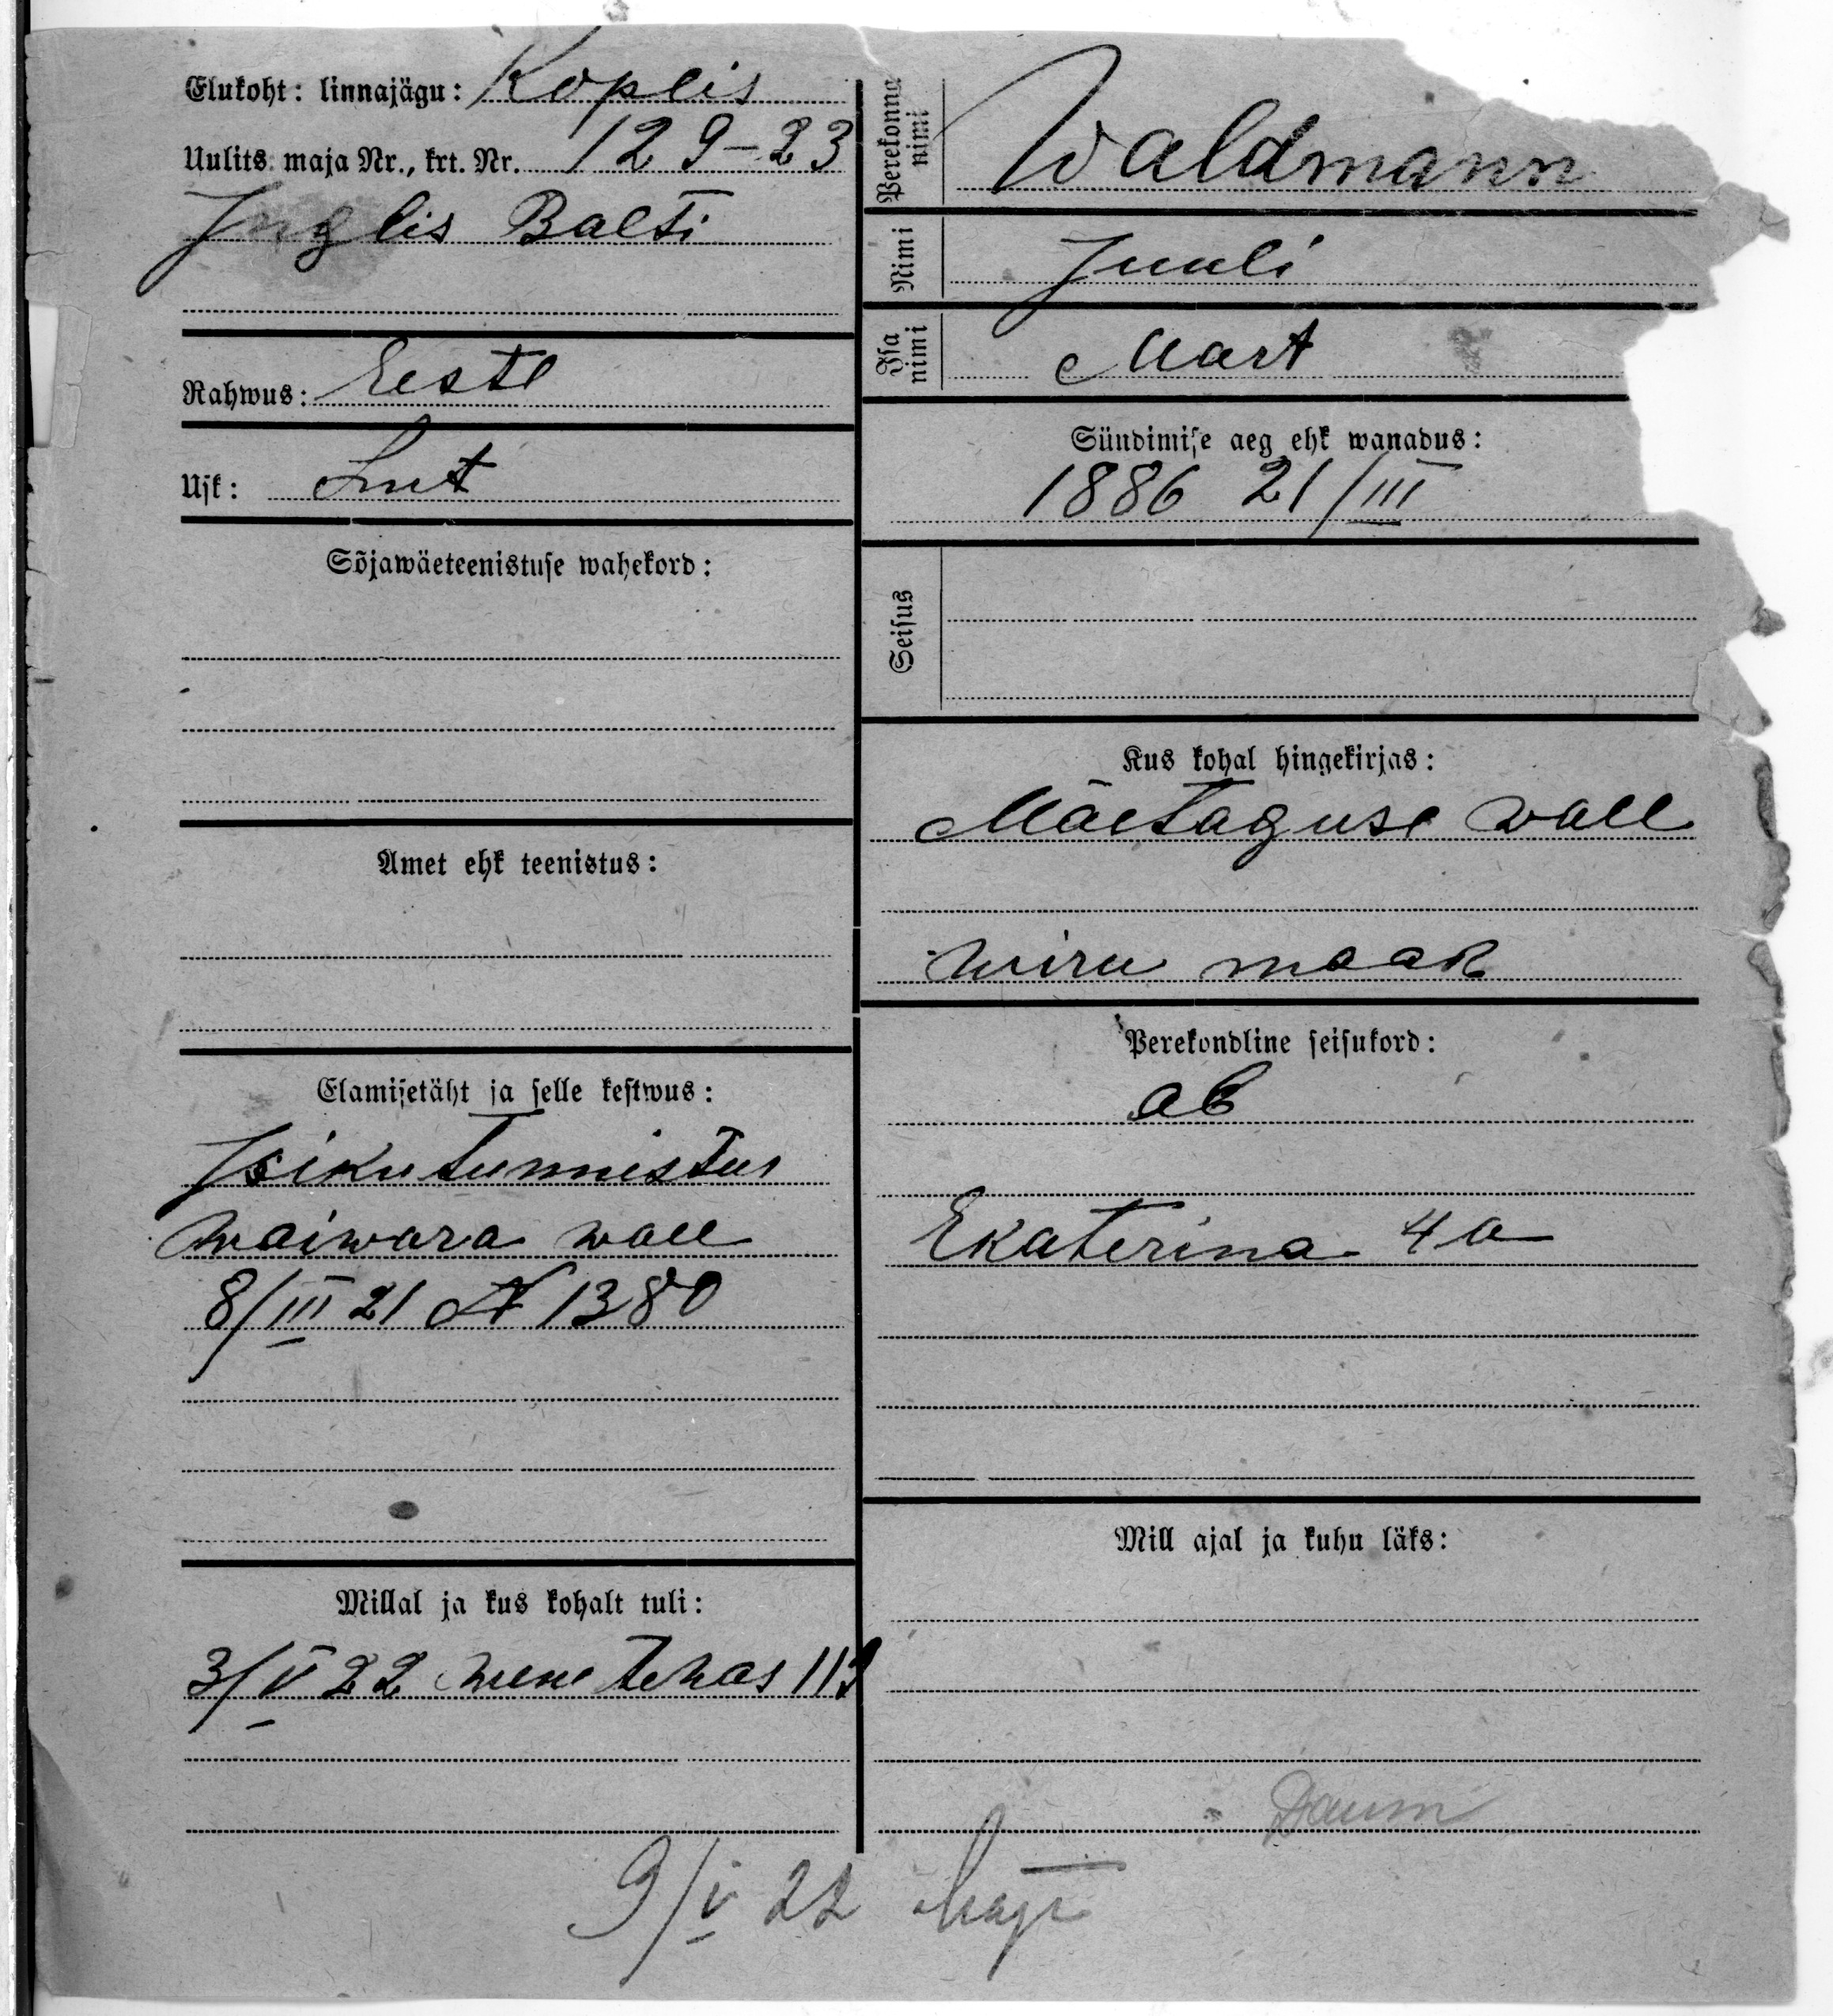 Elukoht: linnajägu: Koplis
Uulits maja Nr., krt. Nr. 129-23
Inglis Balti
Rahwus: Eesti
Usk: Lut
Sõjawäeteenistuse wahekord:
Amet ehk teenistus:
Elamisetäht ja selle kestwus:
Isikutunnistus
Waiwara wall
8/III 21 № 1380
Millal ja kus kohalt tuli:
3/V 22 Wene tehas 113
Perekonna nimi Waldmann
Nimi Juuli
Isa nimi Mart
Sündimise aeg ehk wanadus:
1886 21/III
Seisus
Kus kohal hingekirjas:
Mäetaguse wall
Wiru maak
Perekondline seisukord:
ab
Ekaterina 4 a
Mill ajal ja kuhu läks:
Daum
9/V 22